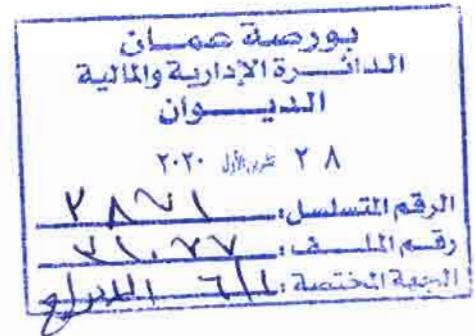 بورصة عمان
الدائرة الإدارية والمالية
الديوان
٢٨ تشرين الأول ٢٠٢٠
الرقم المتسلسل:
رقم الملف:
الجهة المختصة: